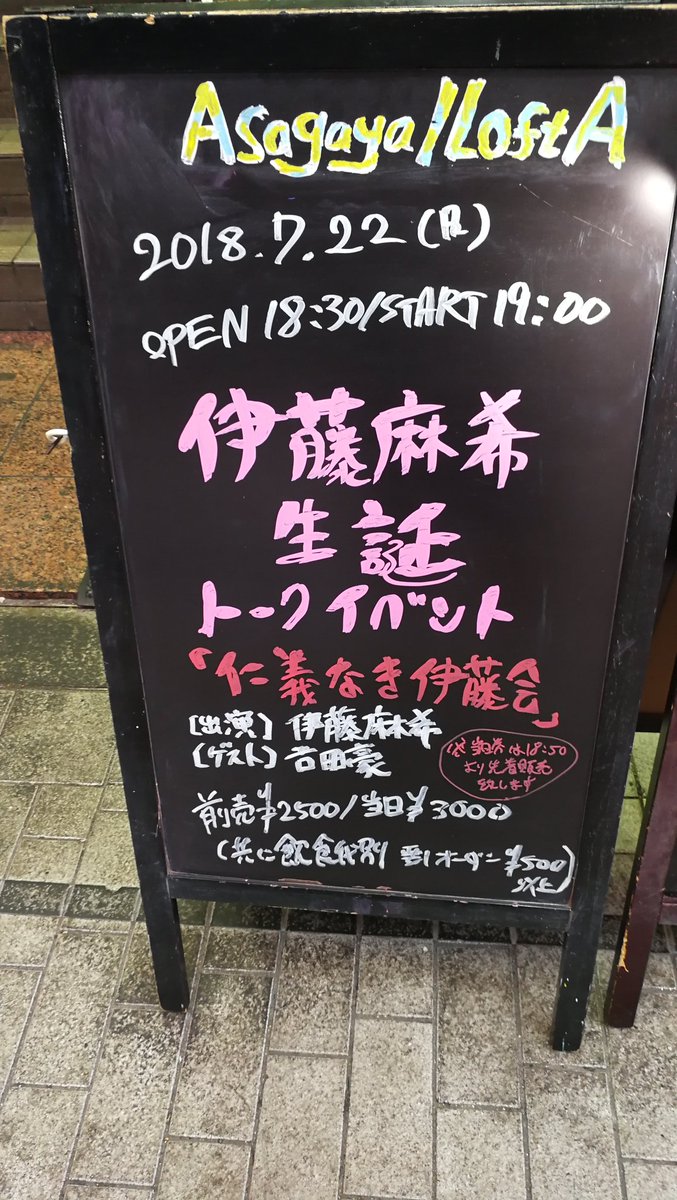 Asagaya/LoftA
2018.7.22(日)
OPEN 18:30/START 19:00
伊藤麻希
生誕
トークイベント
「仁義なき伊藤会」
[出演] 伊藤麻希
[ゲスト] 吉田豪
当日券は18:50
より先着販売
致します
前売¥2500/当日¥3000
(共に飲食代別 要1オーダー¥500
以上)